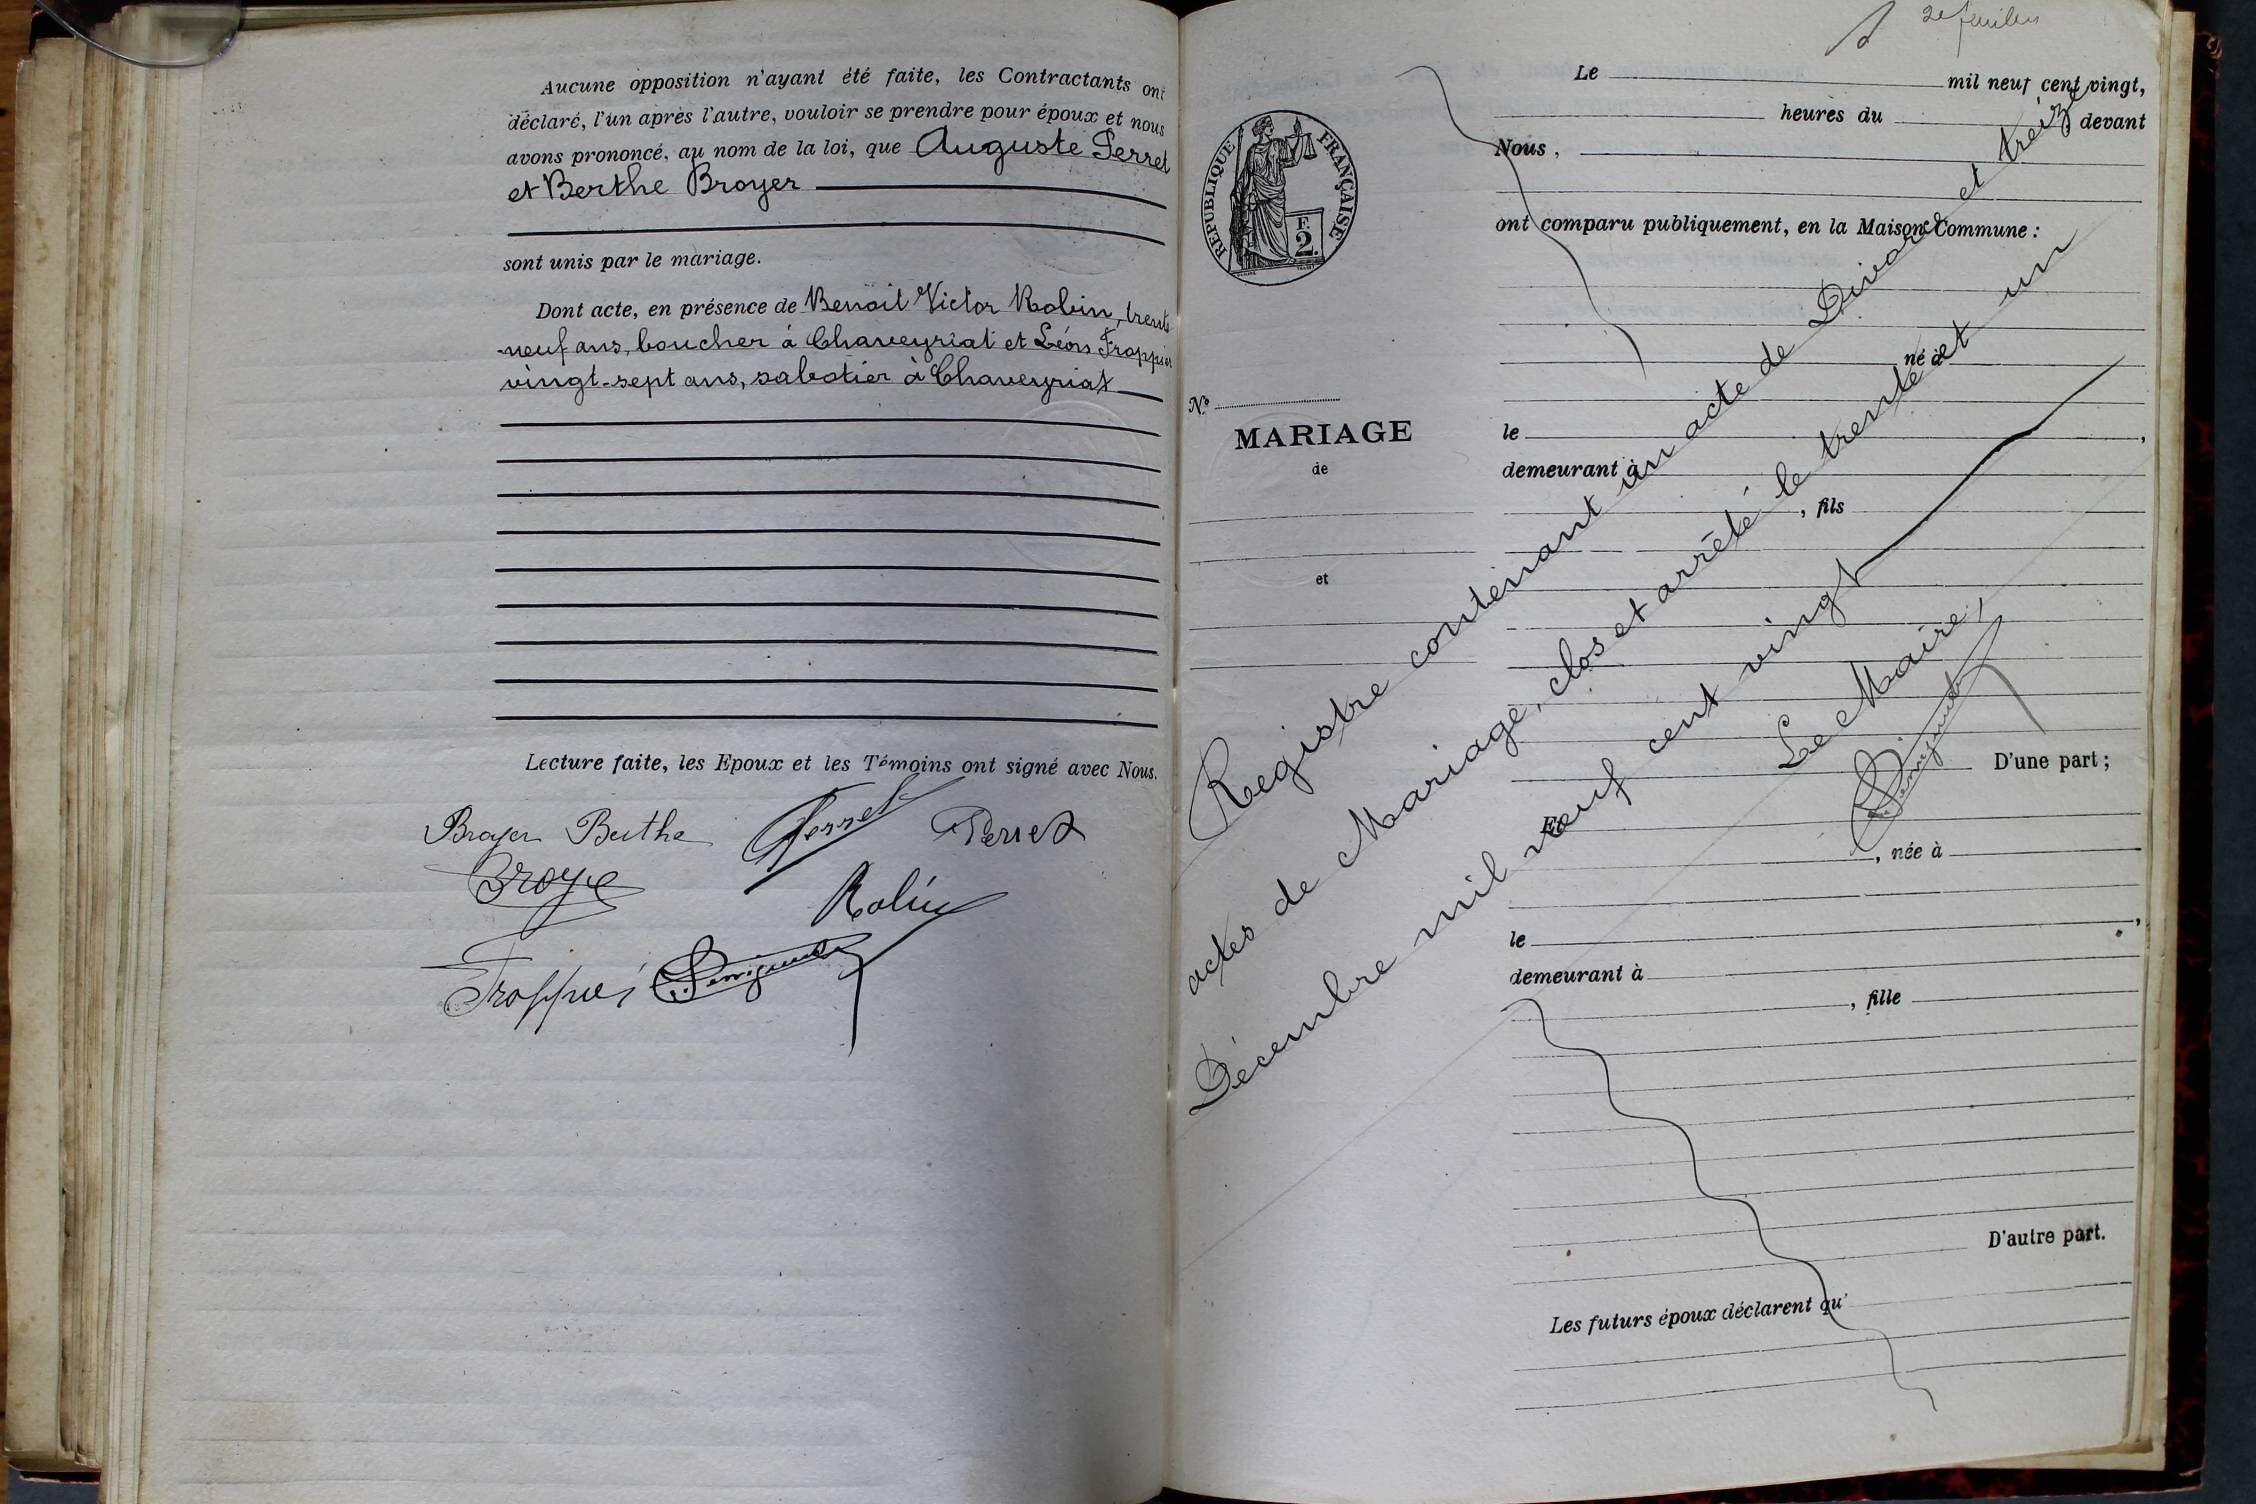 Aucune opposition n'ayant été faite, les Contractants ont
déclaré, l'un après l'autre, vouloir se prendre pour époux et nous
avons prononcé, au nom de la loi, que Auguste Perret
et Berthe Broyer
sont unis par le mariage.
Dont acte, en présence de Benoit Victor Robin, trente
-neuf ans, boucher à Chaveyriat et Léon Frappier
vingt-sept ans, sabotier à Chaveyriat
Lecture faite, les Epoux et les Témoins ont signé avec Nous.
Broyer Berthe Perret Perret
Broye Robin
2e feuillet
Le mil neuf cent vingt,
heures du devant
Nous,
ont comparu publiquement, en la Maison Commune :
REPUBLIQUE FRANÇAISE
F.
2.
né à
No
MARIAGE
de
et
le ,
demeurant à
, fils
D'une part ;
Et
, née à
le ,
demeurant à
, fille
D'autre part.
Les futurs époux déclarent qu'
Registre contenant un acte de Divorce et treize
actes de Mariage, clos et arrêté le trente et un
Décembre mil neuf cent vingt
Le Maire,